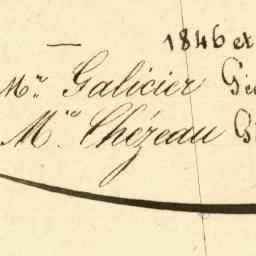 — 1846 et
Mr Galicier
Mr Chézeau